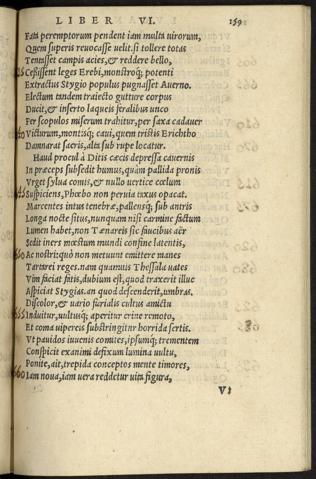 LIBER VI. 159
Fata peremptorum pendent iam multa uirorum,
Quem superis reuocasse uelit. si tollere totas
Tentasset campis acies, & reddere bello,
Cessissent leges Erebi, monstroq; potenti
Extractus Stygio populus pugnasset Auerno.
Electum tandem traiecto gutture corpus
Ducit, et inserto laqueis feralibus unco
Per scopulos miserum trahitur, per saxa cadauer
Victurum, montisq; caui, quem tristis Erichtho
Damnarat sacris, alta sub rupe locatur.
Haud procul à Ditis cæcis depressa cauernis
In præceps subsedit humus, quàm pallida pronis
Vrget sylua comis, & nullo uertice cœlum
Suspiciens, Phœbo non peruia taxus opacat.
Marcentes intus tenebræ, pallensq; sub antris
Longa nocte situs, nunquam nisi carmine factum
Lumen habet, non Tænareis sic faucibus aër
Sedit iners mœstum mundi confine latentis,
Ac nostri: quò non metuunt emittere manes
Tartarei reges. nam quamuis Thessala uates
Vim faciat fatis, dubium est, quod traxerit illuc
Aspiciat Stygias, an quod descenderit, umbras.
Discolor, & uario furialis cultus amictu
Induitur, uultusq; aperitur crine remoto,
Et coma uipereis substringitur horrida sertis.
Vt pauidos iuuenis comites, ipsumq; trementem
Conspicit exanimi defixum lumina uultu,
Ponite, ait, trepida conceptos mente timores,
Iam noua, iam uera reddetur uita figura,